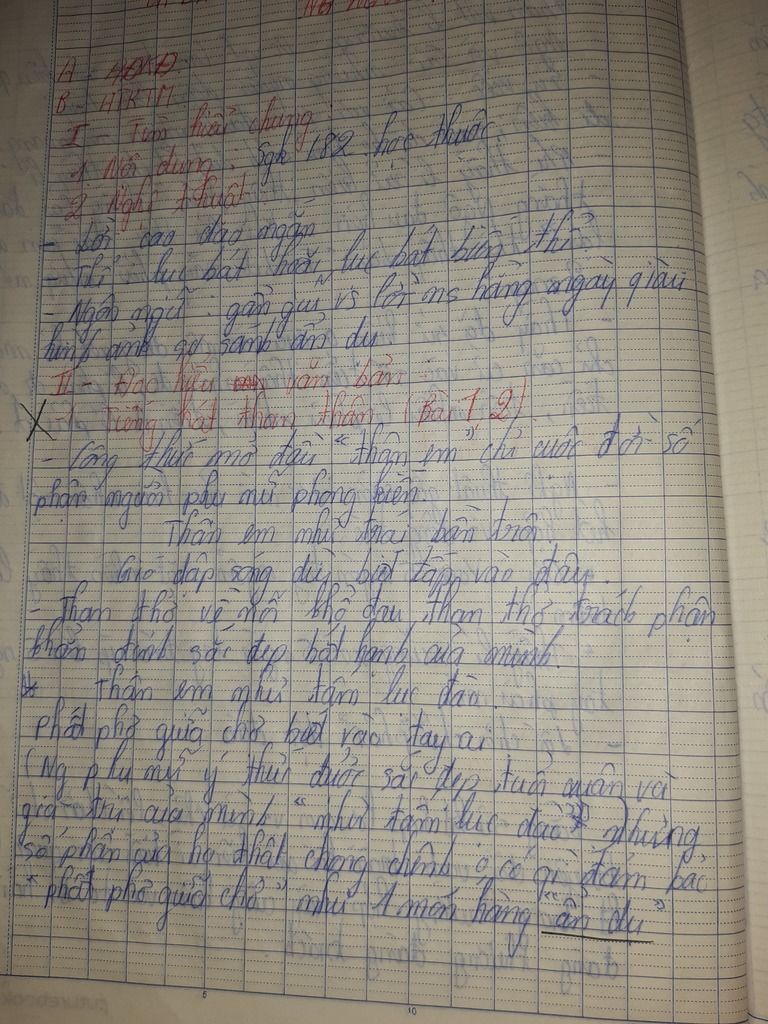 A - HĐKĐ
B - HTKTM
I - Tìm hiểu chung
1 Nội dung. Sgk 182 học thuộc
2 Nghệ thuật
- Lời cao dao ngắn
- Thể: lục bát hoặc lục bát biến thể
- Ngôn ngữ: gần gũi vs lời ns hàng ngày giàu
hình ảnh so sánh ẩn dụ
II - Đọc hiểu văn bản
1 Tiếng hát than thân (Bài 1, 2)
- Công thức mở đầu "thân em" chỉ cuộc đời số
phận người phụ nữ phong kiến.
Thân em như trái bần trôi
Gió dập sóng dùi biết tấp vào đâu.
- Than thở về nỗi khổ đau than thở trách phận
khẳn định sắc đẹp bất hạnh của mình.
* Thân em như tấm lục đào.
phất phơ giữa chợ biết vào tay ai
(Ng phụ nữ ý thức được sắc đẹp tuổi xuân và
giá trị của mình "như tấm lục đào" nhưng
số phận của họ thật chong chênh o có gì đảm bảo
"phất phơ giữa chợ" như 1 món hàng "ẩn dụ"